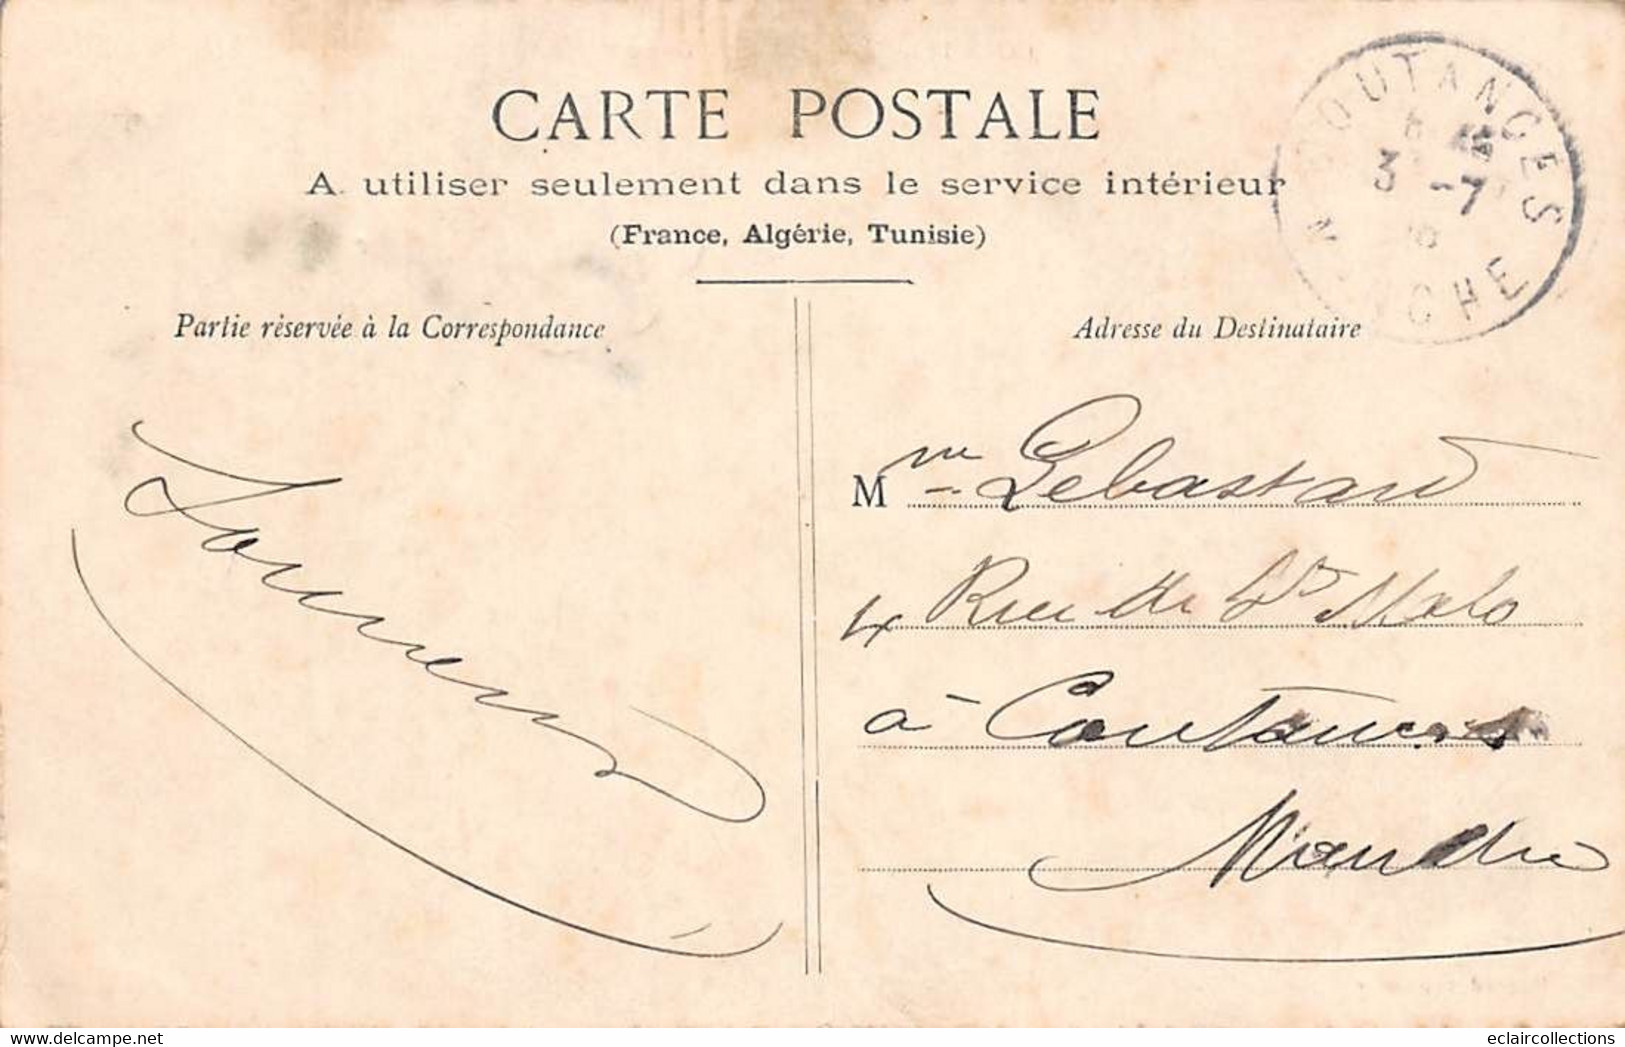 CARTE POSTALE
A utiliser seulement dans le service intérieur
(France, Algérie, Tunisie)
COUTANGES
3 -7
CHE
Partie réservée à la Correspondance
Adresse du Destinataire
Mme Lebastard
4 Rue de St Malo
à Coutances
Manche
eclaircollections